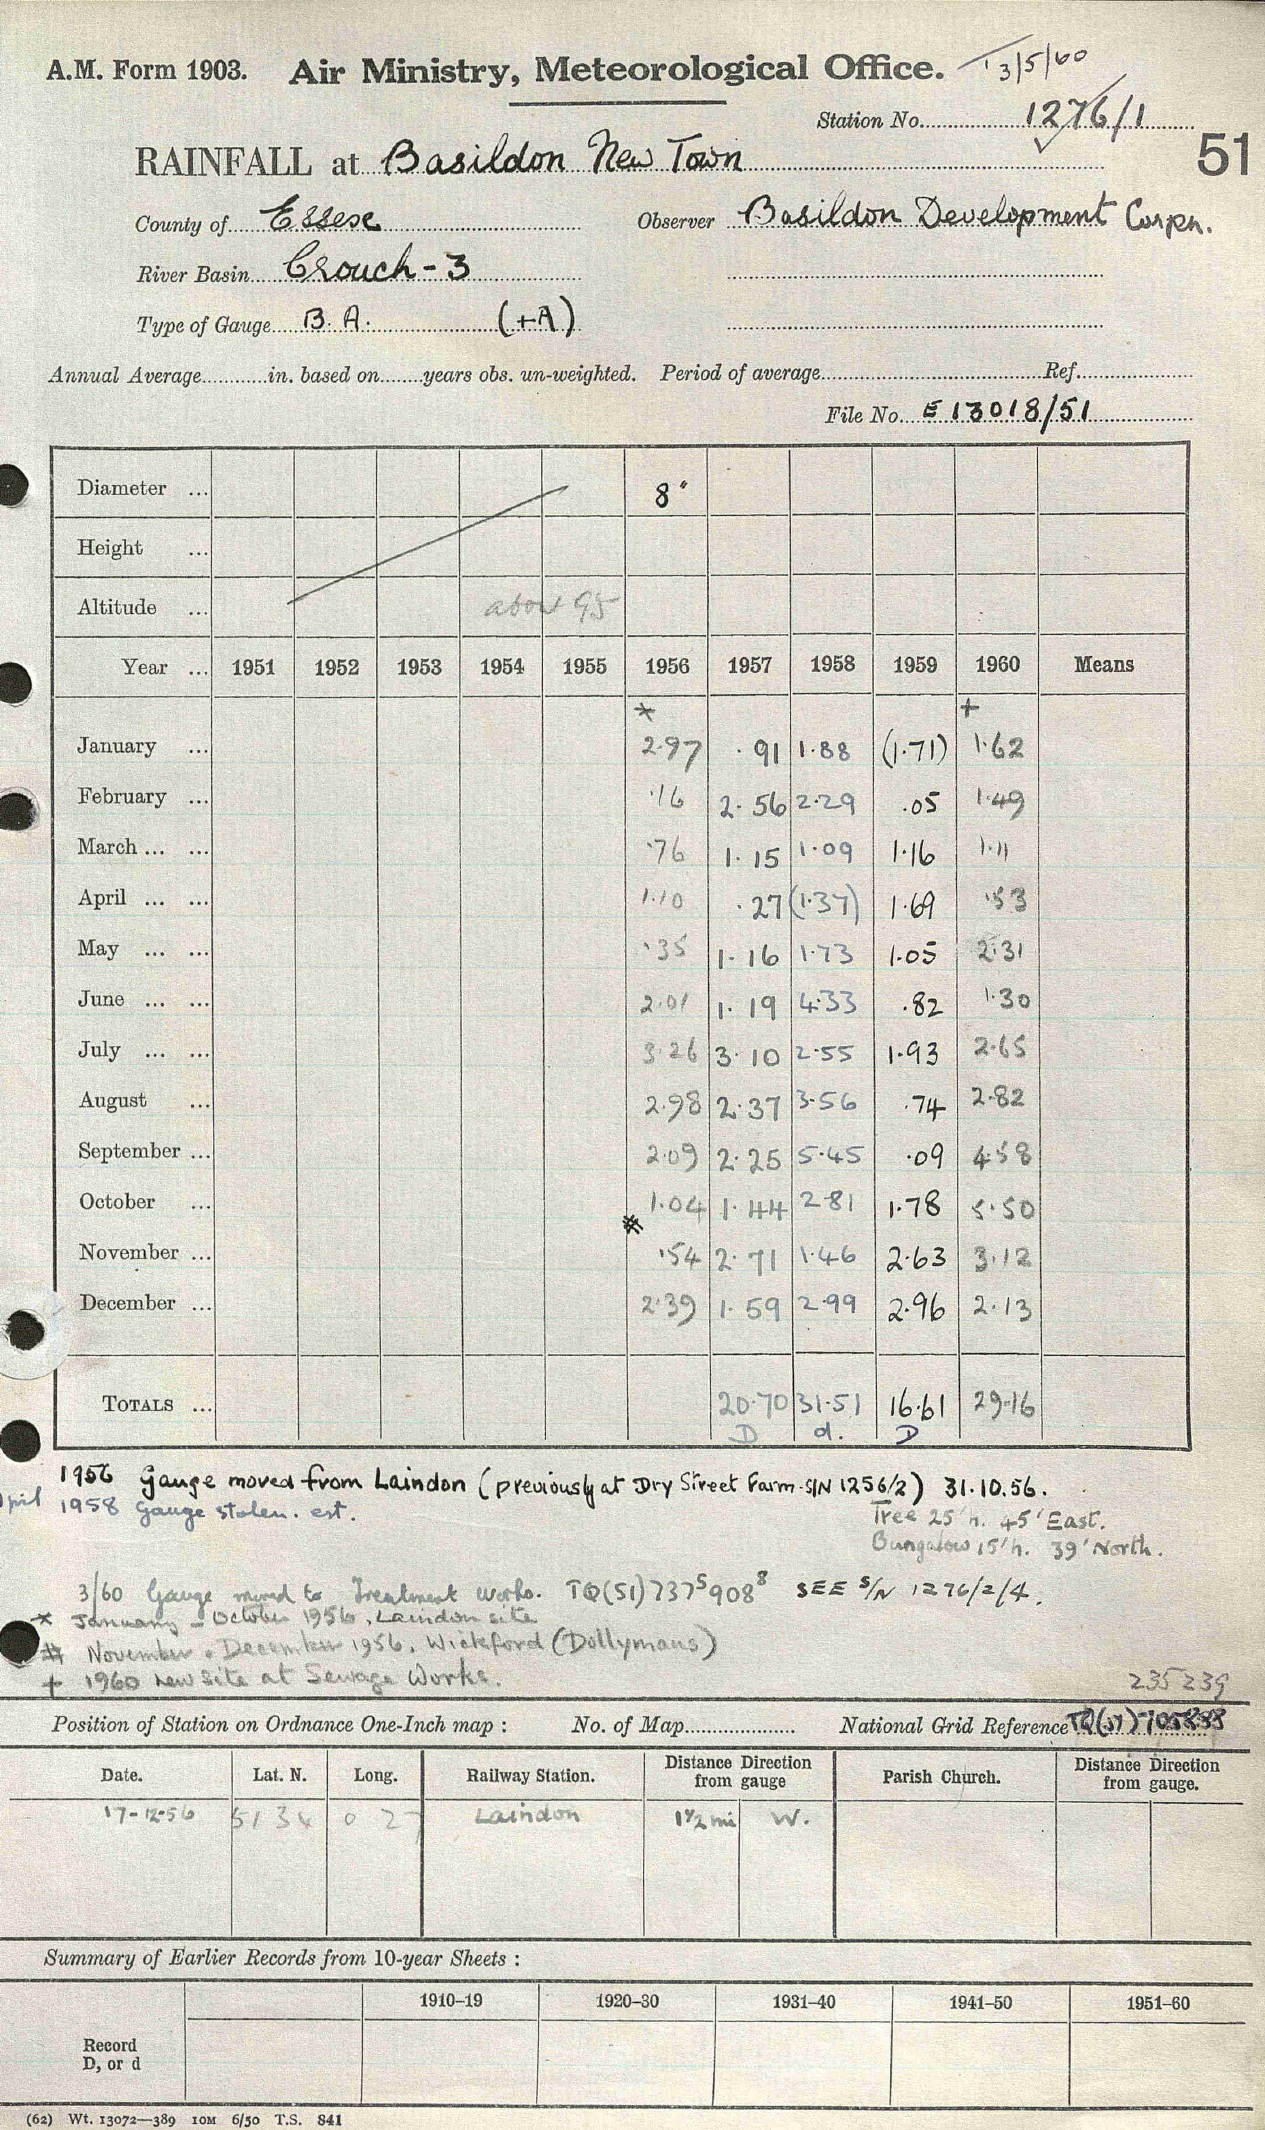 A.M. Form 1903. Air Ministry, Meteorological Office. 13/5/60
Station No. 1276/1
RAINFALL at Basildon New Town 51
County of Essex Observer Basildon Development Corpn.
River Basin Crouch - 3
Type of Gauge B.A. (+A)
Annual Average in. based on years obs. un-weighted. Period of average Ref.
File No. E 13018/51
Diameter ... 8"
Height ...
Altitude ... about 95
Year ... 1951 1952 1953 1954 1955 1956 1957 1958 1959 1960 Means
* +
January ... 2.97 .91 1.88 (1.71) 1.62
February ... .16 2.56 2.29 .05 1.49
March ... ... .76 1.15 1.09 1.16 1.11
April ... ... 1.10 .27 (1.37) 1.69 .53
May ... ... .35 1.16 1.73 1.05 2.31
June ... ... 2.01 1.19 4.33 .82 1.30
July ... ... 3.26 3.10 2.55 1.93 2.65
August ... 2.98 2.37 3.56 .74 2.82
September ... 2.09 2.25 5.45 .09 4.58
October ... 1.04 1.44 2.81 1.78 5.50
November ... # .54 2.71 1.46 2.63 3.12
December ... 2.39 1.59 2.99 2.96 2.13
TOTALS ... 20.70 31.51 16.61 29.16
D d. D
1956 Gauge moved from Laindon (previously at Dry Street Farm S/N 1256/2) 31.10.56.
April 1958 Gauge stolen. est.
Tree 25'h. 45' East.
Bungalow 15'h. 39' North.
3/60 Gauge moved to Treatment Works. TQ(51)737⁵908⁸ SEE S/N 1276/2/4.
* January - October 1956, Laindon site
# November & December 1956, Wickford (Dollymans)
+ 1960 new site at Sewage Works.
235 239
Position of Station on Ordnance One-Inch map : No. of Map National Grid Reference
Date. Lat. N. Long. Railway Station. Distance Direction from gauge Parish Church. Distance Direction from gauge.
17-12-56 51 34 0 27 Laindon 1½ mi W.
Summary of Earlier Records from 10-year Sheets :
1910–19 1920–30 1931–40 1941–50 1951–60
Record
D, or d
(62) Wt. 13072—389 10M 6/50 T.S. 841